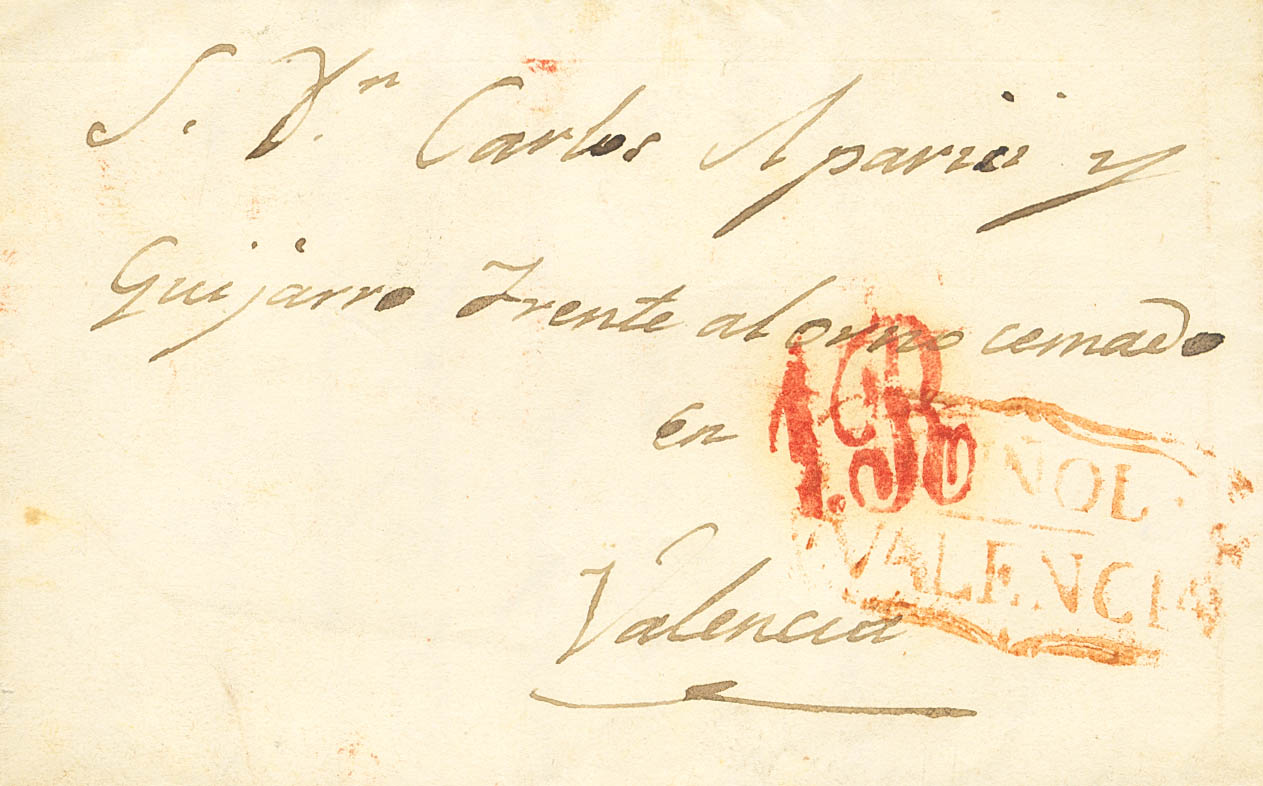 S. Dn Carlos Aparici y
Guijarro Frente al orno cerrado
en
1. R
ÑOL
VALENCIA
Valencia